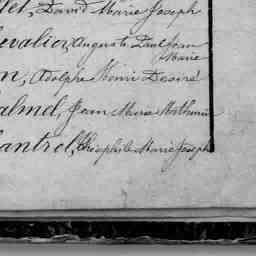 let, David Marie Joseph
hevalier, Auguste Paul Jean
Marie
n, Adolphe Henri Désiré
almd, Jean Marie Mathurin
antrel, Théophile Marie Joseph